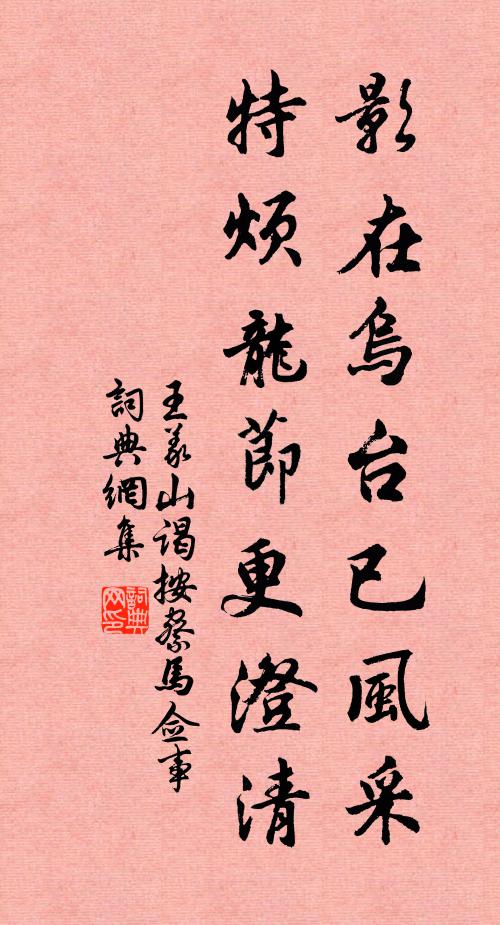 影在烏台已風采
特煩龍節更澄清
王義山謁按察馬僉事
詞典網集
詞典网印